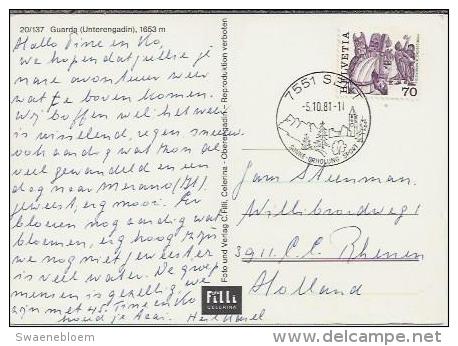 20/137 Guarda (Unterengadin), 1653 m
Hallo Tine en Ko,
we hopen dat jullie je
nare avontuur weer
wat te boven komen.
Wij boffen wel het weer
is wisselend, regen, sneeuw
ook aardig wat zon al
veel gewandeld en een
dag naar Merano (It)
geweest, erg mooi. Er
bloeien nog aardig wat
bloemen, erg hoog zijn
we nog niet geweest, er
is veel water. De groep
mensen is gezellig, we
zijn met 45. Tine en Ko
houd je taai.
Foto und Verlag C. Filli, Celerina - Oberengadin - Reproduktion verboten
Filli
CELERINA
HELVETIA
70
7551
-5.10.81-11
SONNE-ERHOLUNG SPORT
Willibrordweg 1
3911 C.C. Rhenen
Holland
Swaenebloem
delcampe.net